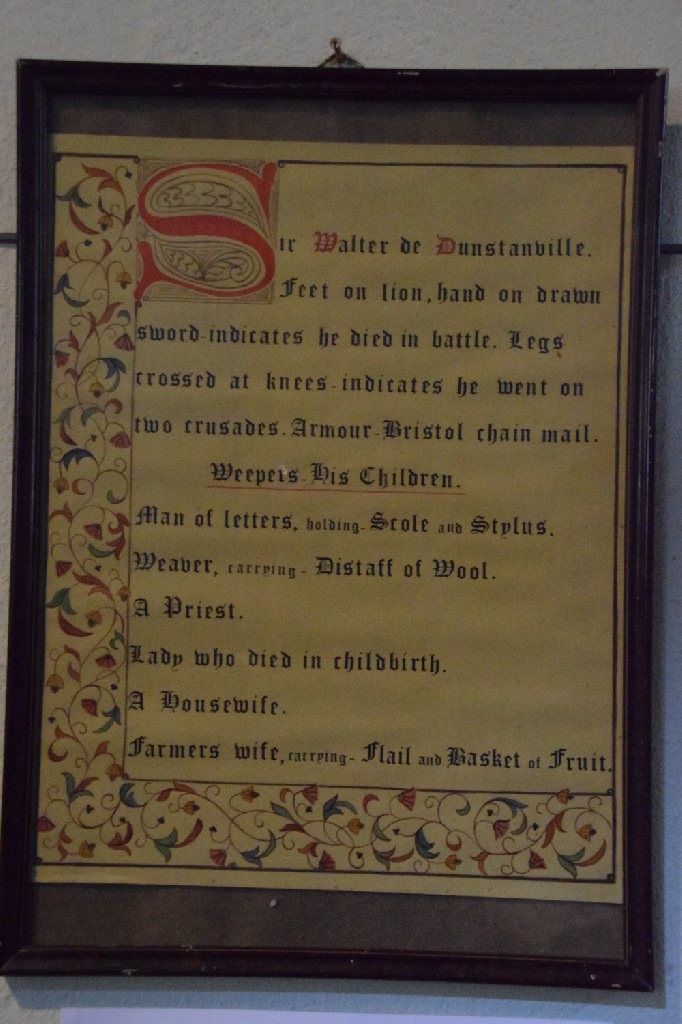 Sir Walter de Dunstanville.
Feet on lion, hand on drawn
sword-indicates he died in battle. Legs
crossed at knees-indicates he went on
two crusades. Armour-Bristol chain mail.
Weepers-His Children.
Man of letters, holding-Scole and Stylus.
Weaver, carrying-Distaff of Wool.
A Priest.
Lady who died in childbirth.
A Housewife.
Farmers wife, carrying-Flail and Basket of Fruit.